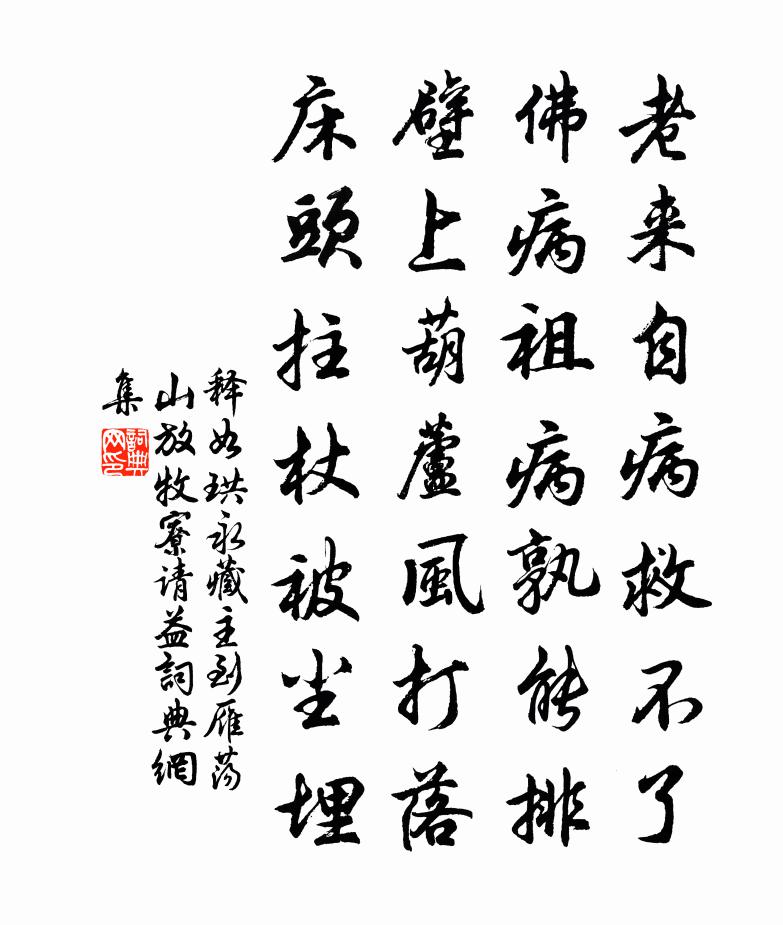 老来自病救不了
佛病祖病孰能排
壁上葫蘆風打落
床頭拄杖被尘埋
释如珙永藏主到雁荡
山放牧寮请益詞典網
集
詞典网印